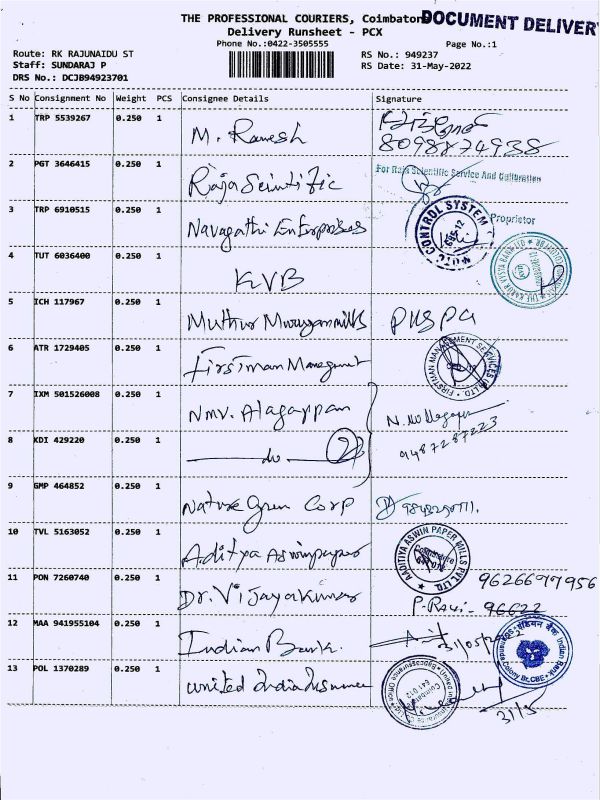 THE PROFESSIONAL COURIERS, Coimbatore
DOCUMENT DELIVERY
Delivery Runsheet - PCX
Phone No.:0422-3505555
Page No.:1
Route: RK RAJUNAIDU ST
RS No.: 949237
Staff: SUNDARAJ P
RS Date: 31-May-2022
DRS No.: DCJB94923701
S No Consignment No Weight PCS Consignee Details Signature
1 TRP 5539267 0.250 1 M. Ramesh
2 PGT 3646415 0.250 1 Raja Scintific For Raja Scientific Service And Calibration
Proprietor
3 TRP 6910515 0.250 1 Navagathi Enterprises CONTROL SYSTEM
4 TUT 6036400 0.250 1 KVB
5 ICH 117967 0.250 1 Muthur Murugan mills puspa
6 ATR 1729405 0.250 1 Firstman Managemnt FIRSTMAN MANAGEMENT SERVICES (P) LTD.
7 IXM 501526008 0.250 1 Nmv. Alagappan
8 KDI 429220 0.250 1 do 9487287223
9 GMP 464852 0.250 1 Nature Green Corp
10 TVL 5163052 0.250 1 Aditya Aswinpaper AADITYA ASWIN PAPER MILLS PVT LTD
11 PON 7260740 0.250 1 Dr. Vijayakumar 9626697956
96622
12 MAA 941955104 0.250 1 Indian Bank 31/05/2022 इंडियन बैंक Indian Bank
13 POL 1370289 0.250 1 united India Insurance 31/5